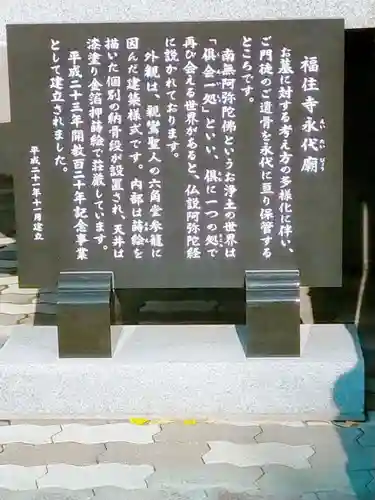 福住寺永代廟
えいたいびょう
お墓に対する考え方の多様化に伴い、
ご門徒のご遺骨を永代に亘り保管する
ところです。
南無阿弥陀佛というお浄土の世界は
「倶会一処」といい、倶に一つの処で
再び会える世界があると、仏説阿弥陀経
に説かれております。
外観は、親鸞聖人の六角堂参籠に
因んだ建築様式です。内部は蒔絵を
描いた個別の納骨段が設置され、天井は
漆塗り金箔押蒔絵で荘厳しています。
平成二十三年開教百二十年記念事業
として建立されました。
平成二十一年十一月建立